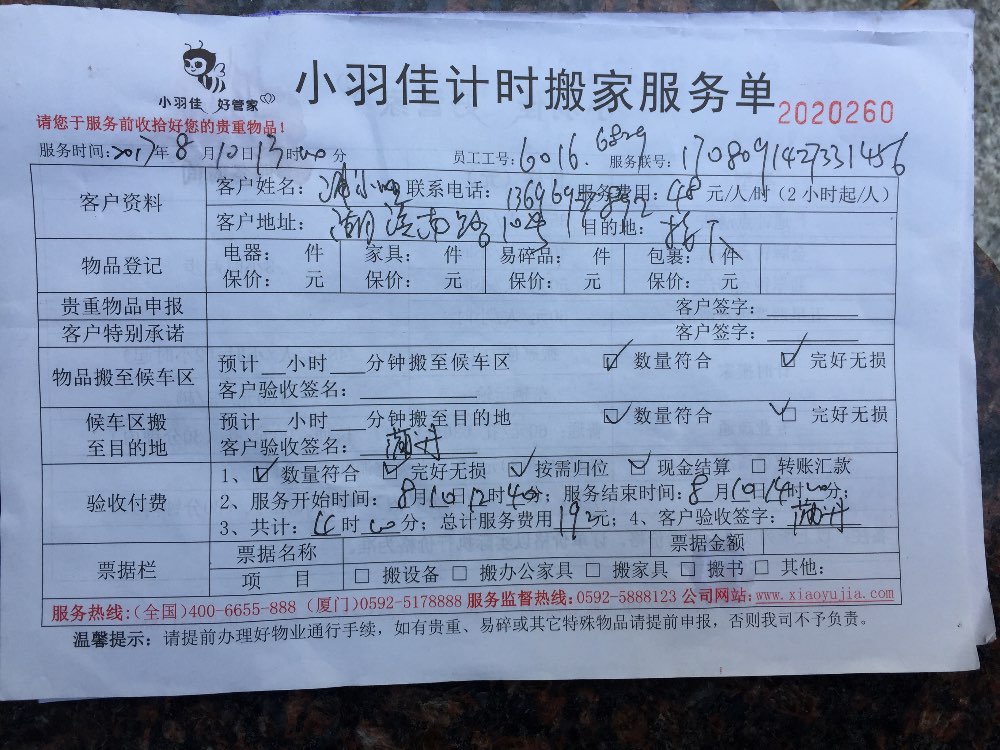 小羽佳 好管家
小羽佳计时搬家服务单
2020260
请您于服务前收拾好您的贵重物品!
服务时间:2017年8月10日13时00分 员工工号:6016.6829 服务联号:1708091427331456
客户资料 客户姓名: 联系电话: 服务费用:48元/人/时(2小时起/人)
客户地址: 南路10号 目的地:拆下
物品登记 电器: 件 家具: 件 易碎品: 件 包裹: 件
保价: 元 保价: 元 保价: 元 保价: 元
贵重物品申报 客户签字:
客户特别承诺 客户签字:
物品搬至候车区 预计__小时___分钟搬至候车区 ☑ 数量符合 ☑ 完好无损
客户验收签名:
候车区搬至目的地 预计__小时___分钟搬至目的地 ☑ 数量符合 ☑ 完好无损
客户验收签名:
验收付费 1、☑ 数量符合 ☑ 完好无损 ☑ 按需归位 ☑ 现金结算 □ 转账汇款
2、服务开始时间:8月10日12时40分;服务结束时间:8月10日14时00分;
3、共计: 时00分;总计服务费用192元;4、客户验收签字:
票据栏 票据名称 票据金额
项 目 □ 搬设备 □ 搬办公家具 □ 搬家具 □ 搬书 □ 其他:
服务热线:(全国)400-6655-888 (厦门)0592-5178888 服务监督热线:0592-5888123 公司网站:www.xiaoyujia.com
温馨提示:请提前办理好物业通行手续,如有贵重、易碎或其它特殊物品请提前申报,否则我司不予负责。